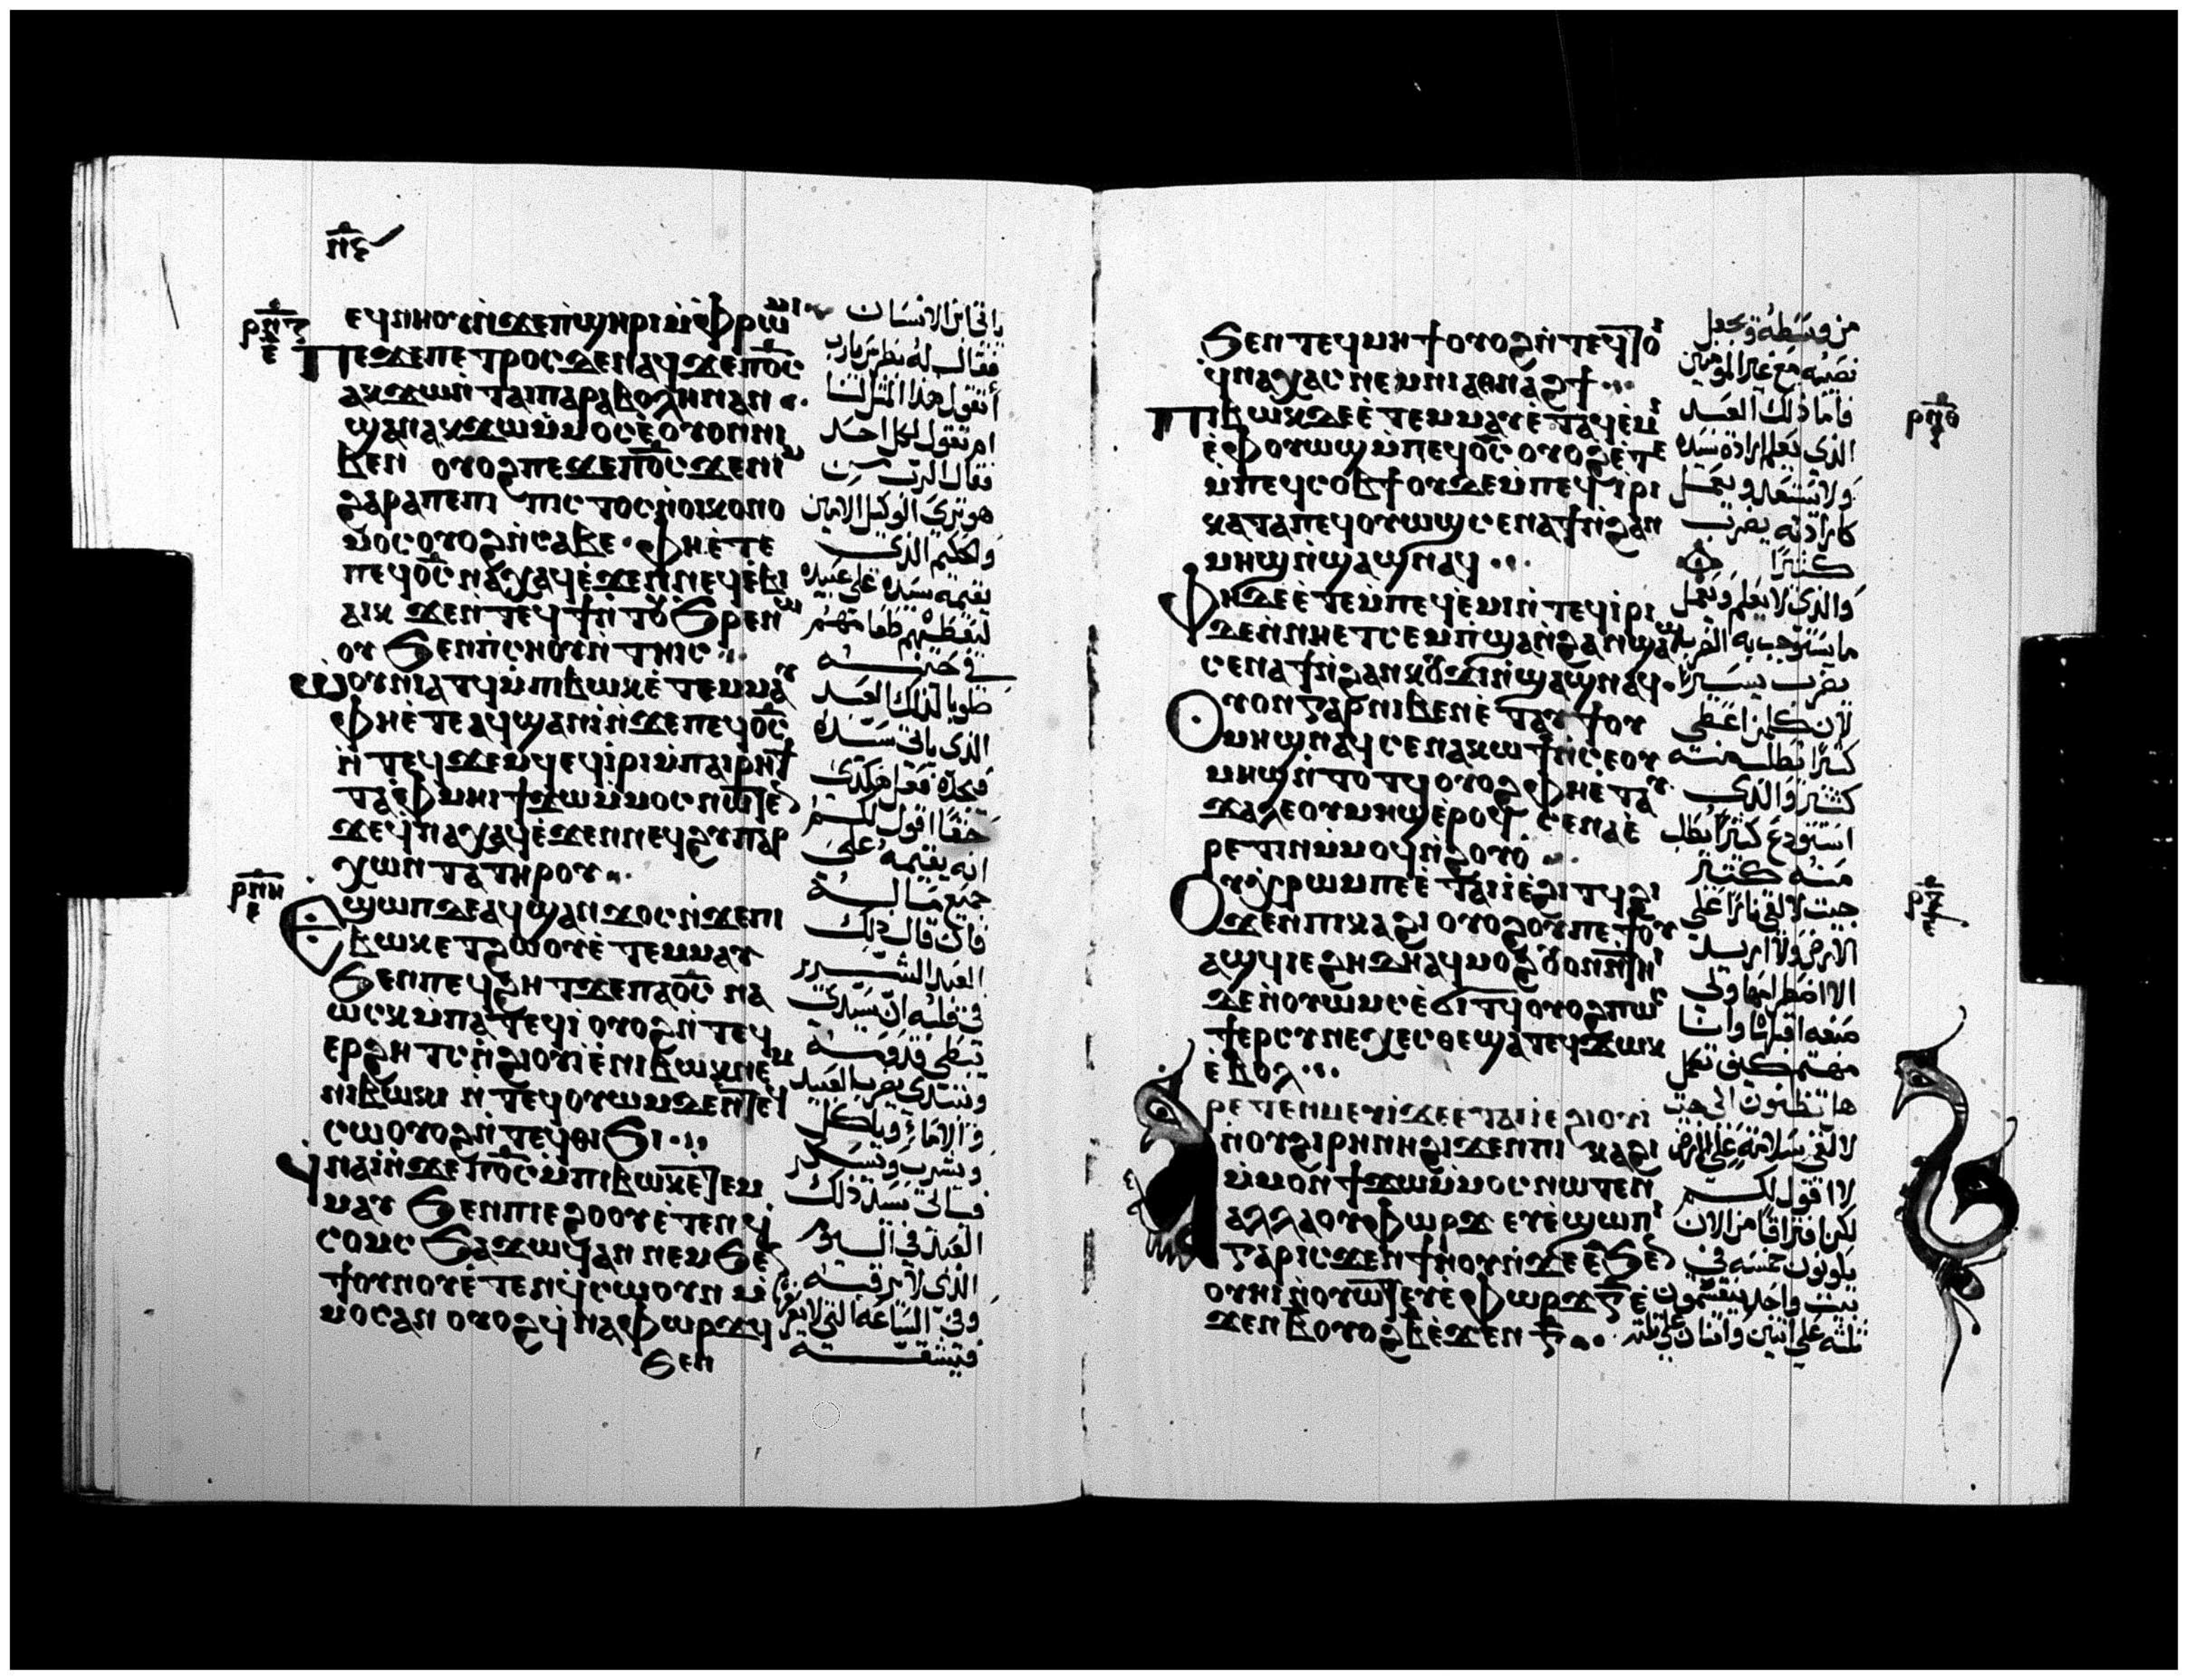 ⲡⲋ
ⲉϥⲛⲏⲟⲩⲛ̀ϫⲉⲡ̀ϣⲏⲣⲓⲙ̀ⲫⲣⲱⲙⲓ
ⲣⲡⲍ
ⲉ
ⲡⲉϫⲉⲡⲉⲧⲣⲟⲥϫⲉⲛⲁϥϫⲉⲡ⳪
ⲁⲕϫⲱⲛ̀ⲧⲁⲓⲡⲁⲣⲁⲃⲟⲗⲏⲛⲁⲛ
ϣⲁⲛⲁⲕϫⲱⲙ̀ⲙⲟⲥⲉ̀ⲟⲩⲟⲛⲛⲓ
ⲃⲉⲛ ⲟⲩⲟϩⲡⲉϫⲉⲡ⳪ϫⲉⲛⲓⲙ
ϩⲁⲣⲁⲡⲉⲡⲓ ⲡⲓⲥⲧⲟⲥⲛ̀ⲟⲓⲕⲟⲛⲟ
ⲙⲟⲥⲟⲩⲟϩⲛ̀ⲥⲁⲃⲉ ⲫⲏⲉ̀ⲧⲉ
ⲡⲉϥ⳪ⲛⲁⲭⲁϥⲉ̀ϫⲉⲛⲛⲉϥⲉ̀ⲃⲓ
ⲁⲓⲕ ϫⲉⲛ̀ⲧⲉϥϯⲛ̀ⲧⲟⲩϧⲣⲉⲛⲱ
ⲟⲩ ϧⲉⲛⲡ̀ⲥⲏⲟⲩⲛ̀ⲧⲏⲓⲥ
ⲱⲟⲩⲛⲓⲁⲧϥⲙ̀ⲡⲓⲃⲱⲕⲉ̀ⲧⲉⲙⲙⲁⲩ
ⲫⲏⲉ̀ⲧⲉⲁϥϣⲁⲛⲓ̀ⲛ̀ϫⲉⲡⲉϥ⳪
ⲛ̀ⲧⲉϥϫⲉⲙϥⲉϥⲓ̀ⲣⲓⲙ̀ⲡⲁⲓⲣⲏϯ
ⲧⲁⲫⲙⲏⲓϯϫⲱⲙ̀ⲙⲟⲥⲛⲱⲧⲉⲛ
ϫⲉϥⲛⲁⲭⲁϥⲉ̀ϫⲉⲛⲛⲉϥϩⲩⲡⲁⲣ
ⲭⲱⲛⲧⲁⲧⲏⲣⲟⲩ
ⲣⲡⲏ
ⲉ
ⲉϣⲱⲡϫⲉⲁϥϣⲁⲛϫⲟⲥⲛ̀ϫⲉⲡⲓ
ⲃⲱⲕⲉⲧϩⲱⲟⲩⲉ̀ⲧⲉⲙⲙⲁⲩ
ϧⲉⲛⲡⲉϥϩⲏⲧϫⲉⲡⲁ⳪ ⲛⲁ
ⲱⲥⲕⲙ̀ⲡⲁⲧⲉϥⲓ̀ ⲟⲩⲟϩⲛ̀ⲧⲉϥ
ⲉⲣϩⲏⲧⲥⲛ̀ϩⲓⲟⲩⲓⲉ̀ⲛⲓⲃⲱⲕⲛⲉⲙ
ⲛⲓⲃⲱⲕⲓ ⲛ̀ⲧⲉϥⲟⲩⲱⲙϫⲉⲛ̀ⲧⲉϥ
ⲥⲱⲟⲩⲟϩⲛ̀ⲧⲉϥⲑⲓϧⲓ
ϥⲛⲁⲓ̀ⲛ̀ϫⲉⲡ⳪ⲙ̀ⲡⲓⲃⲱⲕⲉ̀ⲧⲉⲙ
ⲙⲁⲩ ϧⲉⲛⲡⲓⲉϩⲟⲟⲩⲉ̀ⲧⲉⲛϥ
ⲥⲟⲙⲥ ϧⲁϫⲱϥⲁⲛ ⲛⲉⲙϧⲉⲛ
ϯⲟⲩⲛⲟⲩⲉ̀ⲧⲉⲛϥ̀ⲥⲱⲟⲩⲛ ⲙ̀
ⲙⲟⲥⲁⲛ ⲟⲩⲟϩϥ̀ⲛⲁⲫⲱⲣϫϥ
ϧⲉⲛ
ياتي ابن الانسان
فقال له بطرس يارب
أتقول هذا المثل لنا
ام تقول لكل احد
فقال الرب من
هو ترى الوكيل الامين
والحكيم الذي
يقيمه سيده على عبيده
ليعطيهم طعامهم
في حينه
طوبا لذلك العبد
الذي ياتي سيده
فيجده فعل هكذى
حقا اقول لكم
انه يقيمه على
جميع ماله
فان قال ذلك
العبد الشرير
في قلبه ان سيدي
يبطى قدومه
ويبتدى يضرب العبيد
والاماء وياكل
ويشرب ويسكر
فياتي سيد ذلك
العبد في اليوم
الذي لا يترقبه
وفي الساعة التي لا يعرفها
فيشقه
ϧⲉⲛⲧⲉϥⲙⲏϯⲟⲩⲟϩⲛ̀ⲧⲉϥⲧⲟⲓ
ϥⲛⲁⲭⲁⲥⲛⲉⲙⲛⲓⲁⲑⲛⲁϩϯ
ⲡⲓⲃⲱⲕϫⲉⲉ̀ⲧⲉⲙⲙⲁⲩⲉ̀ⲧⲁϥⲉ̀ⲙⲓ
ⲉ̀ⲫⲟⲩⲱϣⲙ̀ⲡⲉϥ⳪ⲟⲩⲟϩⲉ̀ⲧⲉ
ⲙ̀ⲡⲉϥⲥⲟⲃϯⲟⲩϫⲉⲙ̀ⲡⲉϥⲓ̀ⲣⲓ
ⲕⲁⲧⲁⲡⲉϥⲟⲩⲱϣⲥⲉⲛⲁϯⲛ̀ϩⲁⲛ
ⲙⲏϣⲛ̀ϣⲁϣⲛⲁϥ
ⲣⲡⲑ
ⲫⲏϫⲉⲉ̀ⲧⲉⲙ̀ⲡⲉϥⲉ̀ⲙⲓⲛ̀ⲧⲉϥⲓ̀ⲣⲓ
ϫⲉⲛ̀ⲛⲏⲉⲧⲥⲉⲙⲡ̀ϣⲁⲛ̀ϩⲁⲛϣⲁϣ
ⲥⲉⲛⲁϯⲛ̀ϩⲁⲛⲕⲟⲩϫⲓⲛ̀ϣⲁϣⲛⲁϥ
ⲟⲩⲟⲛⲅⲁⲣⲛⲓⲃⲉⲛⲉ̀ⲧⲁⲩϯⲟⲩ
ⲙⲏϣⲛⲁϥⲥⲉⲛⲁⲕⲱϯⲛ̀ⲥⲉⲟⲩ
ⲙⲏϣⲛ̀ⲧⲟⲧϥⲟⲩⲟϩⲫⲏⲉ̀ⲧⲁⲩ
ϫⲁⲗⲉⲟⲩⲙⲏϣⲉ̀ⲣⲟϥ ⲥⲉⲛⲁⲉ̀
ⲣⲉⲧⲓⲛⲙⲙⲟϥⲛ̀ϩⲟⲩⲟ
ⲟⲩⲭⲣⲱⲙⲡⲉⲉ̀ⲧⲁⲓⲓ̀ⲉ̀ϩⲓⲧϥϩⲓ
ϫⲉⲛⲡⲓⲕⲁϩⲓ ⲟⲩⲟϩⲟⲩⲡⲉϯⲟⲩ
ⲁϣϥⲓⲉϩⲏϫⲏⲁϥⲙⲟϩ ⲟⲩⲟⲛⲛ̀ⲧⲏⲓ
ϫⲉⲛ̀ⲟⲩⲱⲙⲥⲉ̀ϭⲓⲧϥⲟⲩⲟϩⲡⲱⲥ
ϯⲉⲣⲥⲩⲛⲉⲭⲉⲥⲑⲉϣⲁⲧⲉϥϫⲱⲕ
ⲉ̀ⲃⲟⲗ
ⲣⲉⲧⲉⲛⲙⲉⲩⲓϫⲉⲉ̀ⲧⲁⲓⲓ̀ⲉϩⲓⲟⲩⲓ
ⲛ̀ⲟⲩϩⲓⲣⲏⲛⲏϩⲓϫⲉⲛⲡⲓ ⲕⲁϩⲓ
ⲙ̀ⲙⲟⲛ ϯϫⲱⲙ̀ⲙⲟⲥⲛⲱⲧⲉⲛ
ⲁⲗⲗⲁⲟⲩⲫⲱⲣϫ ⲉⲩⲉ̀ϣⲱⲡⲓ
ⲅⲁⲣⲓⲥϫⲉⲛϯⲛⲟⲩⲛ̀ϫⲉⲉ̅ϧⲉⲛ
ⲟⲩⲏⲓⲛ̀ⲟⲩⲱⲧⲉⲩⲉ̀ⲫⲱⲣϫⲅ̅ⲉ̀
ϫⲉⲛⲃ̅ⲟⲩⲟϩⲃ̅ⲉ̀ϫⲉⲛⲅ̅
من وسطه ويجعل
نصيبه مع غير المومنين
فاما ذلك العبد
الذي يعلم ارادة سيده
ولا يستعد ويعمل
كارادته يضرب
كثيرا
والذي لا يعلم ويعمل
ما يستوجب به الضرب
يضرب يسيرا
لان كلمن اعطي
كثيرا يطلب منه
كثير والذي
استودع كثيرا يطلب
منه كثير
جيت لالقي نارا على
الارض ولا اريد
الا اضطرامها ولي
صبغه اصطبغها وانا
مهتم كيف تكمل
هل تظنون اني جيت
لالقي سلامة على الارض
لا اقول لكم
لكن افتراقا من الان
يكونون خمسه في
بيت واحد ينقسمون
ثلثه على اثنين واثنان على ثلثه